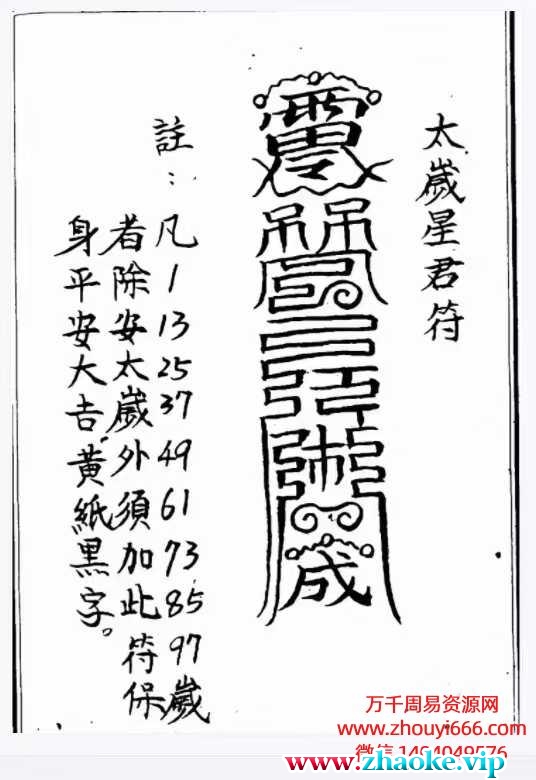 太歲星君符
註：
凡1 13 25 37 49 61 73 85 97歲
者除安太歲外須加此符保
身平安大吉。黃紙黑字。
成
万千周易资源网
www.zhouyi666.com
www.zhaoke.vip